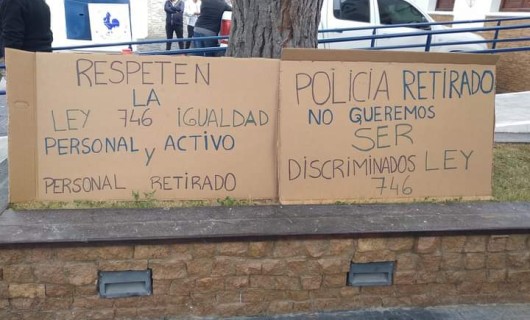 RESPETEN
LA
LEY 746 IGUALDAD
PERSONAL ACTIVO
y
PERSONAL RETIRADO
POLICIA RETIRADO
NO QUEREMOS
SER
DISCRIMINADOS LEY
746